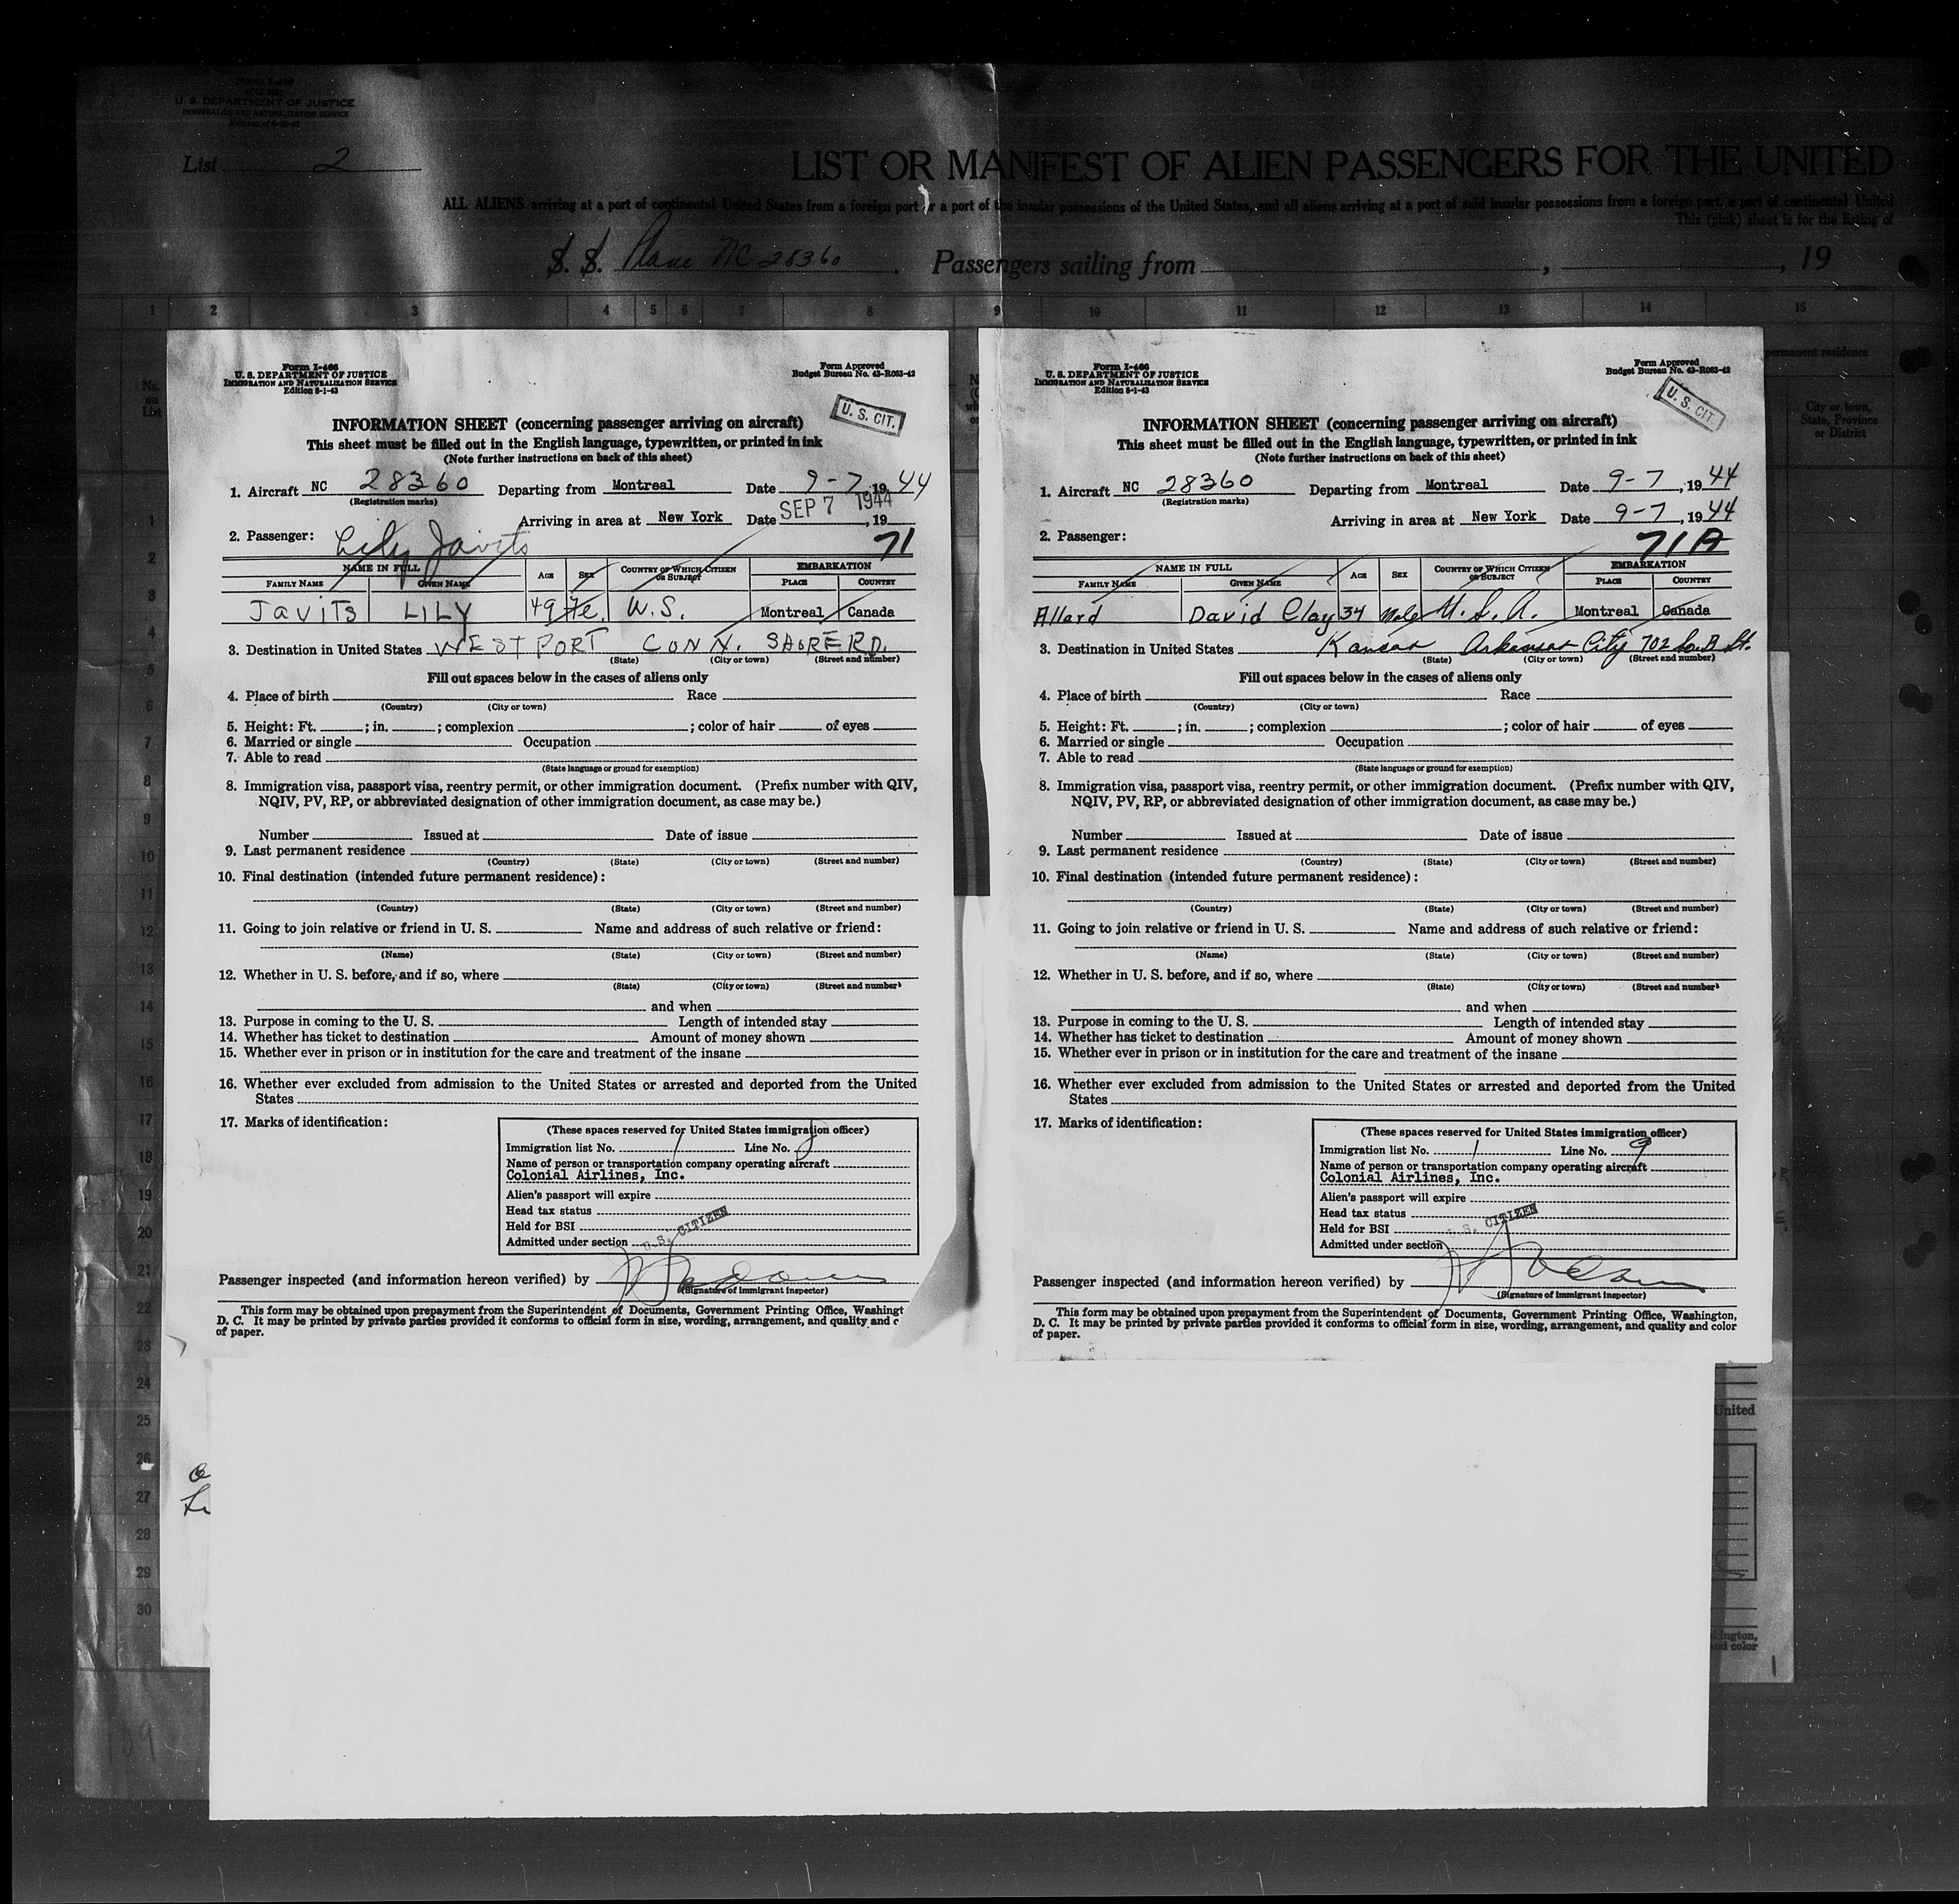 Form I-466
U. S. DEPARTMENT OF JUSTICE
IMMIGRATION AND NATURALIZATION SERVICE
List 2
LIST OR MANIFEST OF ALIEN PASSENGERS FOR THE UNITED
ALL ALIENS arriving at a port of continental United States from a foreign port or a port of the insular possessions of the United States, and all aliens arriving at a port of said insular possessions from a foreign port, a port of continental United
This (pink) sheet is for the listing of
S. S. Plane NC 28360. Passengers sailing from , , 19
1 2 3 4 5 6 7 8 9 10 11 12 13 14 15
permanent residence
No. on List
City or town, State, Province or District
Form I-466
U. S. DEPARTMENT OF JUSTICE
IMMIGRATION AND NATURALIZATION SERVICE
Edition 8-1-43
Form Approved
Budget Bureau No. 43-R053-42
U. S. CIT.
INFORMATION SHEET (concerning passenger arriving on aircraft)
This sheet must be filled out in the English language, typewritten, or printed in ink
(Note further instructions on back of this sheet)
1. Aircraft NC 28360 Departing from Montreal Date 9-7, 1944
(Registration marks)
Arriving in area at New York Date SEP 7 1944, 19
2. Passenger: Lily Javits 71
NAME IN FULL AGE SEX COUNTRY OF WHICH CITIZEN OR SUBJECT EMBARKATION
FAMILY NAME GIVEN NAME PLACE COUNTRY
Javits LILY 49 Fe. U.S. Montreal Canada
3. Destination in United States WESTPORT CONN. SHORE RD.
(State) (City or town) (Street and number)
Fill out spaces below in the cases of aliens only
4. Place of birth Race
(Country) (City or town)
5. Height: Ft. ; in. ; complexion ; color of hair of eyes
6. Married or single Occupation
7. Able to read
(State language or ground for exemption)
8. Immigration visa, passport visa, reentry permit, or other immigration document. (Prefix number with QIV,
NQIV, PV, RP, or abbreviated designation of other immigration document, as case may be.)
Number Issued at Date of issue
9. Last permanent residence
(Country) (State) (City or town) (Street and number)
10. Final destination (intended future permanent residence):
(Country) (State) (City or town) (Street and number)
11. Going to join relative or friend in U. S. Name and address of such relative or friend:
(Name) (State) (City or town) (Street and number)
12. Whether in U. S. before, and if so, where
(State) (City or town) (Street and number)
and when
13. Purpose in coming to the U. S. Length of intended stay
14. Whether has ticket to destination Amount of money shown
15. Whether ever in prison or in institution for the care and treatment of the insane
16. Whether ever excluded from admission to the United States or arrested and deported from the United
States
17. Marks of identification:
(These spaces reserved for United States immigration officer)
Immigration list No. 1 Line No.
Name of person or transportation company operating aircraft
Colonial Airlines, Inc.
Alien's passport will expire
Head tax status
Held for BSI
Admitted under section U.S. CITIZEN
Passenger inspected (and information hereon verified) by
(Signature of immigrant inspector)
This form may be obtained upon prepayment from the Superintendent of Documents, Government Printing Office, Washingt
D. C. It may be printed by private parties provided it conforms to official form in size, wording, arrangement, and quality and c
of paper.
Form I-466
U. S. DEPARTMENT OF JUSTICE
IMMIGRATION AND NATURALIZATION SERVICE
Edition 8-1-43
Form Approved
Budget Bureau No. 43-R053-42
U. S. CIT.
INFORMATION SHEET (concerning passenger arriving on aircraft)
This sheet must be filled out in the English language, typewritten, or printed in ink
(Note further instructions on back of this sheet)
1. Aircraft NC 28360 Departing from Montreal Date 9-7, 1944
(Registration marks)
Arriving in area at New York Date 9-7, 1944
2. Passenger: 71A
NAME IN FULL AGE SEX COUNTRY OF WHICH CITIZEN OR SUBJECT EMBARKATION
FAMILY NAME GIVEN NAME PLACE COUNTRY
Allard David Clay 34 Male U.S.A. Montreal Canada
3. Destination in United States Kansas Arkansas City 702 So. B St.
(State) (City or town) (Street and number)
Fill out spaces below in the cases of aliens only
4. Place of birth Race
(Country) (City or town)
5. Height: Ft. ; in. ; complexion ; color of hair of eyes
6. Married or single Occupation
7. Able to read
(State language or ground for exemption)
8. Immigration visa, passport visa, reentry permit, or other immigration document. (Prefix number with QIV,
NQIV, PV, RP, or abbreviated designation of other immigration document, as case may be.)
Number Issued at Date of issue
9. Last permanent residence
(Country) (State) (City or town) (Street and number)
10. Final destination (intended future permanent residence):
(Country) (State) (City or town) (Street and number)
11. Going to join relative or friend in U. S. Name and address of such relative or friend:
(Name) (State) (City or town) (Street and number)
12. Whether in U. S. before, and if so, where
(State) (City or town) (Street and number)
and when
13. Purpose in coming to the U. S. Length of intended stay
14. Whether has ticket to destination Amount of money shown
15. Whether ever in prison or in institution for the care and treatment of the insane
16. Whether ever excluded from admission to the United States or arrested and deported from the United
States
17. Marks of identification:
(These spaces reserved for United States immigration officer)
Immigration list No. 1 Line No. 9
Name of person or transportation company operating aircraft
Colonial Airlines, Inc.
Alien's passport will expire
Head tax status
Held for BSI
Admitted under section U.S. CITIZEN
Passenger inspected (and information hereon verified) by
(Signature of immigrant inspector)
This form may be obtained upon prepayment from the Superintendent of Documents, Government Printing Office, Washington,
D. C. It may be printed by private parties provided it conforms to official form in size, wording, arrangement, and quality and color
of paper.
1
2
3
4
5
6
7
8
9
10
11
12
13
14
15
16
17
18
19
20
21
22
23
24
25
26
27
28
29
30
United
ington,
nd color
109